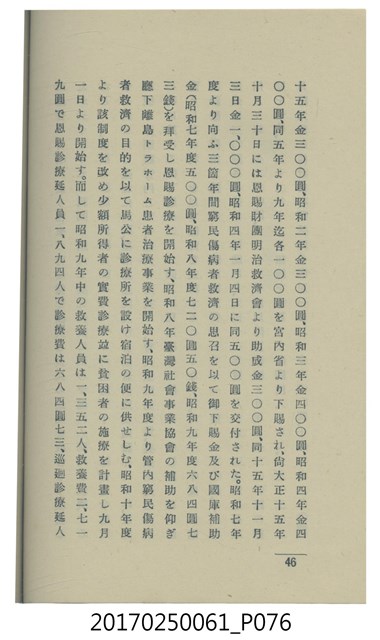 十五年金三〇〇圓、昭和二年金三〇〇圓、昭和三年金四〇〇圓、昭和四年金四
〇〇圓、同五年より九年迄各一〇〇圓を宮内省より下賜され、尙大正十五年
十月三十日には恩賜財團明治救濟會より助成金三〇〇圓、同十五年十一月
三日金一、〇〇〇圓、昭和四年一月四日に同五〇〇圓を交付された。昭和七年
度より向ふ三箇年間窮民傷病者救濟の思召を以て御下賜金及び國庫補助
金(昭和七年度五〇〇圓、昭和八年度七二〇圓五〇錢、昭和九年度六八四圓七
三錢)を拜受し恩賜診療を開始す、昭和八年臺灣社會事業協會の補助を仰ぎ
廳下離島トラホーム患者治療事業を開始す、昭和九年度より管內窮民傷病
者救濟の目的を以て馬公に診療所を設け宿泊の便に供せしむ、昭和十年度
より該制度を改め少額所得者の實費診療並に貧困者の施療を計畫し九月
一日より開始す。而して昭和九年中の救養人員は一、三五二人、救養費二、七一
九圓で恩賜診療延人員一、八九四人で診療費は六八四圓七三、巡廻診療延人
46
20170250061_P076